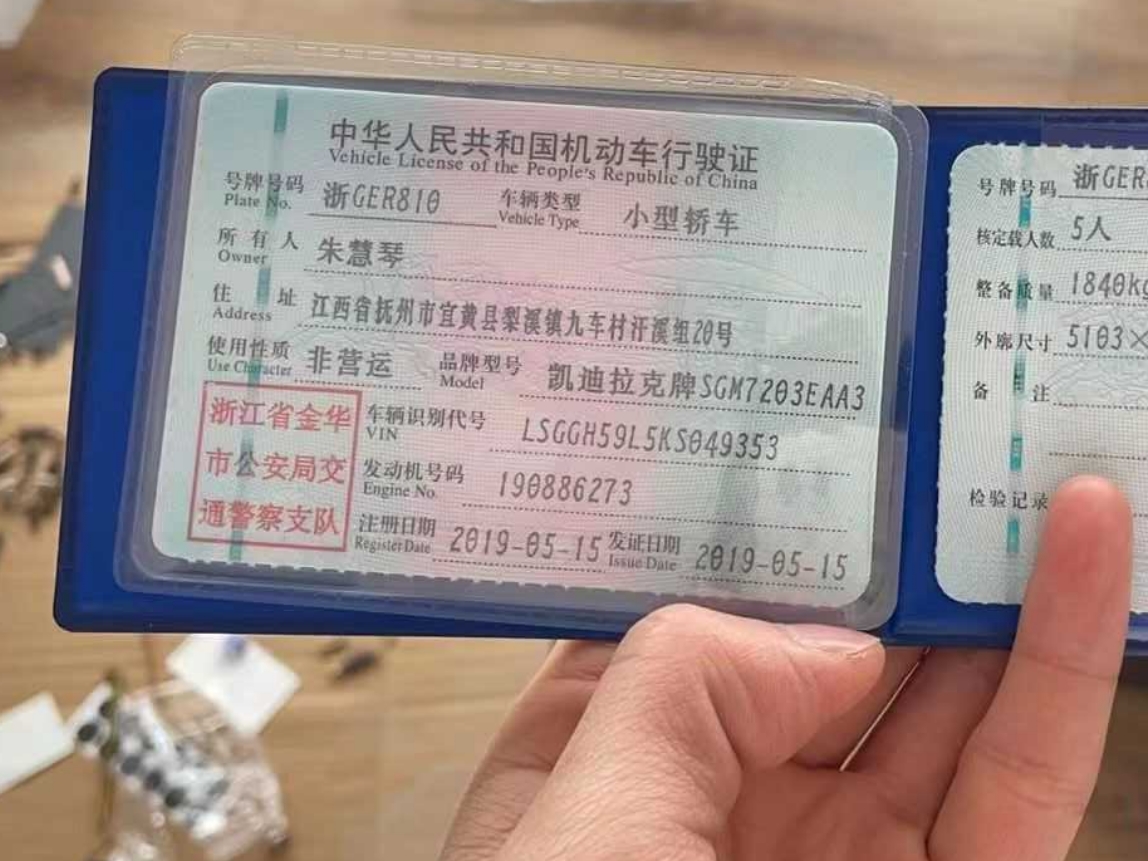 中华人民共和国机动车行驶证
Vehicle License of the People's Republic of China
号牌号码 浙GER810 车辆类型 小型轿车
Plate No. Vehicle Type
所有人 朱慧琴
Owner
住址 江西省抚州市宜黄县梨溪镇九车村汗溪组20号
Address
使用性质 非营运 品牌型号 凯迪拉克牌SGM7203EAA3
Use Character Model
浙江省金华
市公安局交
通警察支队
车辆识别代号 LSGGH59L5KS049353
VIN
发动机号码 190886273
Engine No.
注册日期 2019-05-15 发证日期 2019-05-15
Register Date Issue Date
号牌号码 浙GER
核定载人数 5人
整备质量 1840kg
外廓尺寸 5103×
备注
检验记录